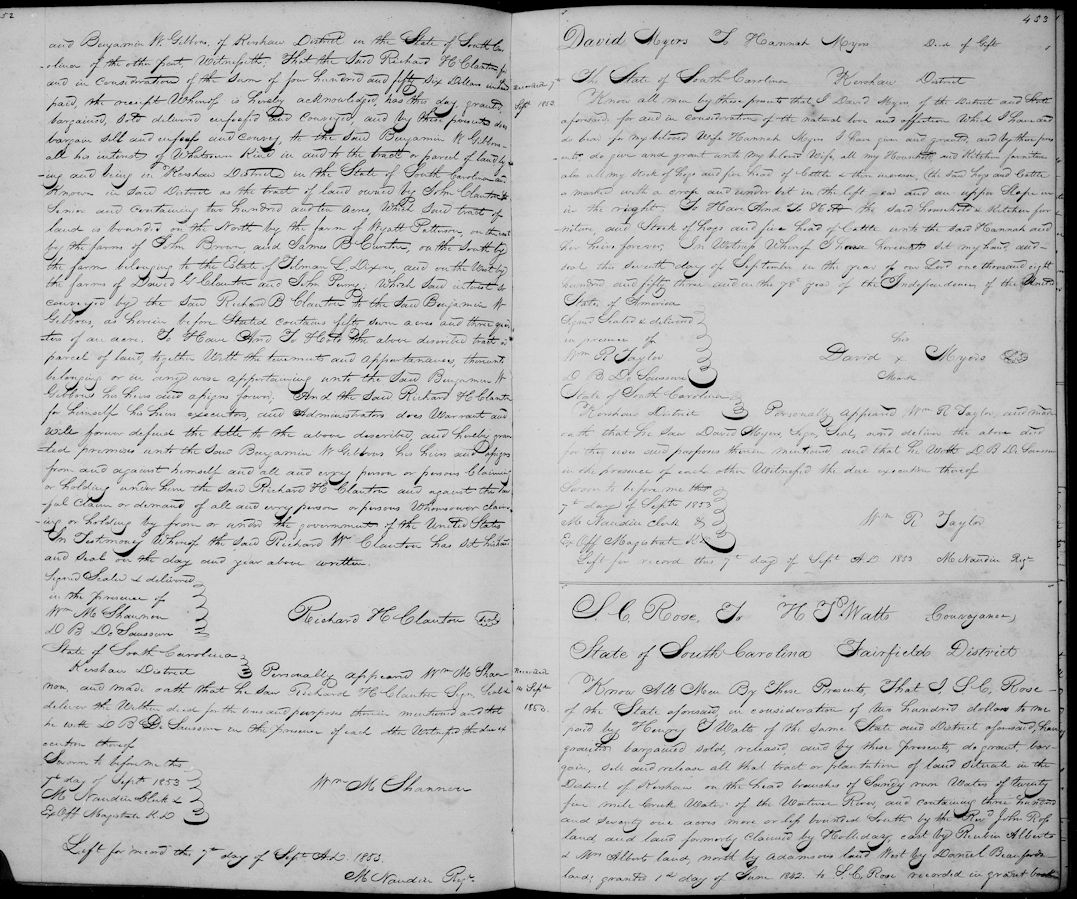 52
and Benjamin W. Gibbons, of Kershaw District in the State of South Car-
olina of the other part, Witnesseth, That the said Richard H Clanton for
and in consideration of the Sum of four hundred and fifty Six Dollars
paid, the receipt Whereof is hereby acknowledged, has this day granted
bargained, sold delivered enfeofed and conveyed, and by these presents does
bargain sell and enfeof and convey, to the said Benjamin W Gibbons
all his interest of Whatever Kind in and to the tract or parcel of land ly-
-ing and being in Kershaw District in the State of South Carolina
Known in said District as the tract of land owned by John Clanton
Senior and containing two hundred and ten acres, Which said tract of
land is bounded on the North by the farm of Wyatt Patterson, on the east
by the farms of John Brown and James B Cureton, on the South by
the farm belonging to the Estate of Tilman L. Dixon, and on the West by
the farms of David G Clanton and Sim Perry, Which said interest
conveyed by the said Richard B Clanton to the said Benjamin W
Gibbons, as herein before Stated contains fifty seven acres and three quar-
ters of an acre. To Have And To Hold the above described tract or
parcel of land, together With the tenements and appurtenances, thereunto
belonging or in any wise appertaining unto the said Benjamin W
Gibbons his heirs and assigns forever. And the said Richard H Clanton
for himself his heirs executors, and administrators does Warrant and
Will forever defend the title to the above described, and hereby gran-
-ted premises unto the said Benjamin W Gibbons his heirs and assigns
from and against himself and all and every person or persons Claiming
or holding under him the said Richard H Clanton and against the law-
ful Claim or demand of all and every person or persons Whomsoever claim-
-ing or holding by from or under the government of the United States
In Testimony Whereof the said Richard Wm Clanton has set his hand
and seal on the day and year above written.
Signed Seald & delivered
in the presence of
Wm M Shannon
D B De Saussure
Richard H Clanton
State of South Carolina
Kershaw District Personally appeared Wm M Shan-
non, and made oath that he saw Richard H Clanton Sign Seal &
deliver the Within deed for the uses and purposes therein mentioned and that
he with D B De Saussure in the presence of each other Witnessed the due ex-
ecution thereof
Sworn to before me this
7th day of Septr 1853
M Naudin Clerk &
Ex Off Magistrate K.D
Wm M Shannon
Left for record this 7th day of Sept A.D. 1853.
M Naudin Regr.
453
David Myers To Hannah Myers Deed of Gift
Recorded 7th
Septr 1853
The State of South Carolina Kershaw District
Know all men by these presents that I David Myers of the District and State
aforesaid for and in consideration of the natural love and affection Which I have and
do bear for my beloved Wife Hannah Myers I Have given and granted, and by these pres-
ents, do give and grant unto my beloved Wife, all my Household and Kitchen furniture
also all my stock of hogs and five head of Cattle & their increase, the said hogs and Cattle
is marked with a crop and under bit in the left ear and an upper Slope in
in the right. To Have And To Hold the said household & Kitchen fur-
-niture and Stock of hogs and five head of Cattle unto the said Hannah and
her heirs forever, In Witness Whereof I have hereunto set my hand and
seal this seventh day of September in the year of our Lord one thousand eight
hundred and fifty three and in the 78th year of the Independence of the United
States of America
Signed Sealed & delivered
in presence of
Wm R Taylor
D B De Saussure
his
David x Myers
Mark
State of South Carolina
Kershaw District Personally appeared Wm R Taylor, and made
oath that he saw David Myers, Sign, Seal, and deliver the above deed
for the uses and purposes therein mentioned and that he With D B De Saussure
in the presence of each other Witnessed the due execution thereof
Sworn to before me this
7th day of Septr 1853
M Naudin Clerk &
Ex Off Magistrate K.D
Wm R Taylor
Left for record this 7th day of Sept A.D. 1853 M Naudin Regr
S. C, Rose, To H T Watts Conveyance,
State of South Carolina Fairfield District
Recorded
Septr
1853.
Know All Men By These Presents That I, S. C, Rose
of the State aforesaid, in consideration of two hundred dollars to me
paid by Henry T Watts of the same State and District aforesaid, have
granted bargained sold, released, and by these presents, do grant bar-
gain, sell and release all that tract or plantation of land Situate in the
District of Kershaw on the head branches of Sandy run Waters of twenty
five mile Creek Waters of the Wateree River, and containing three hundred
and seventy one acres more or less bounded South by the Revd John Ross
land, and land formerly claimed by Holliday east by Reubin Alberts
& Wm Albert land, north by Adamsons land West by Daniel Beaufords
land; granted 1st day of June 1842. to S. C. Rose recorded in grant book